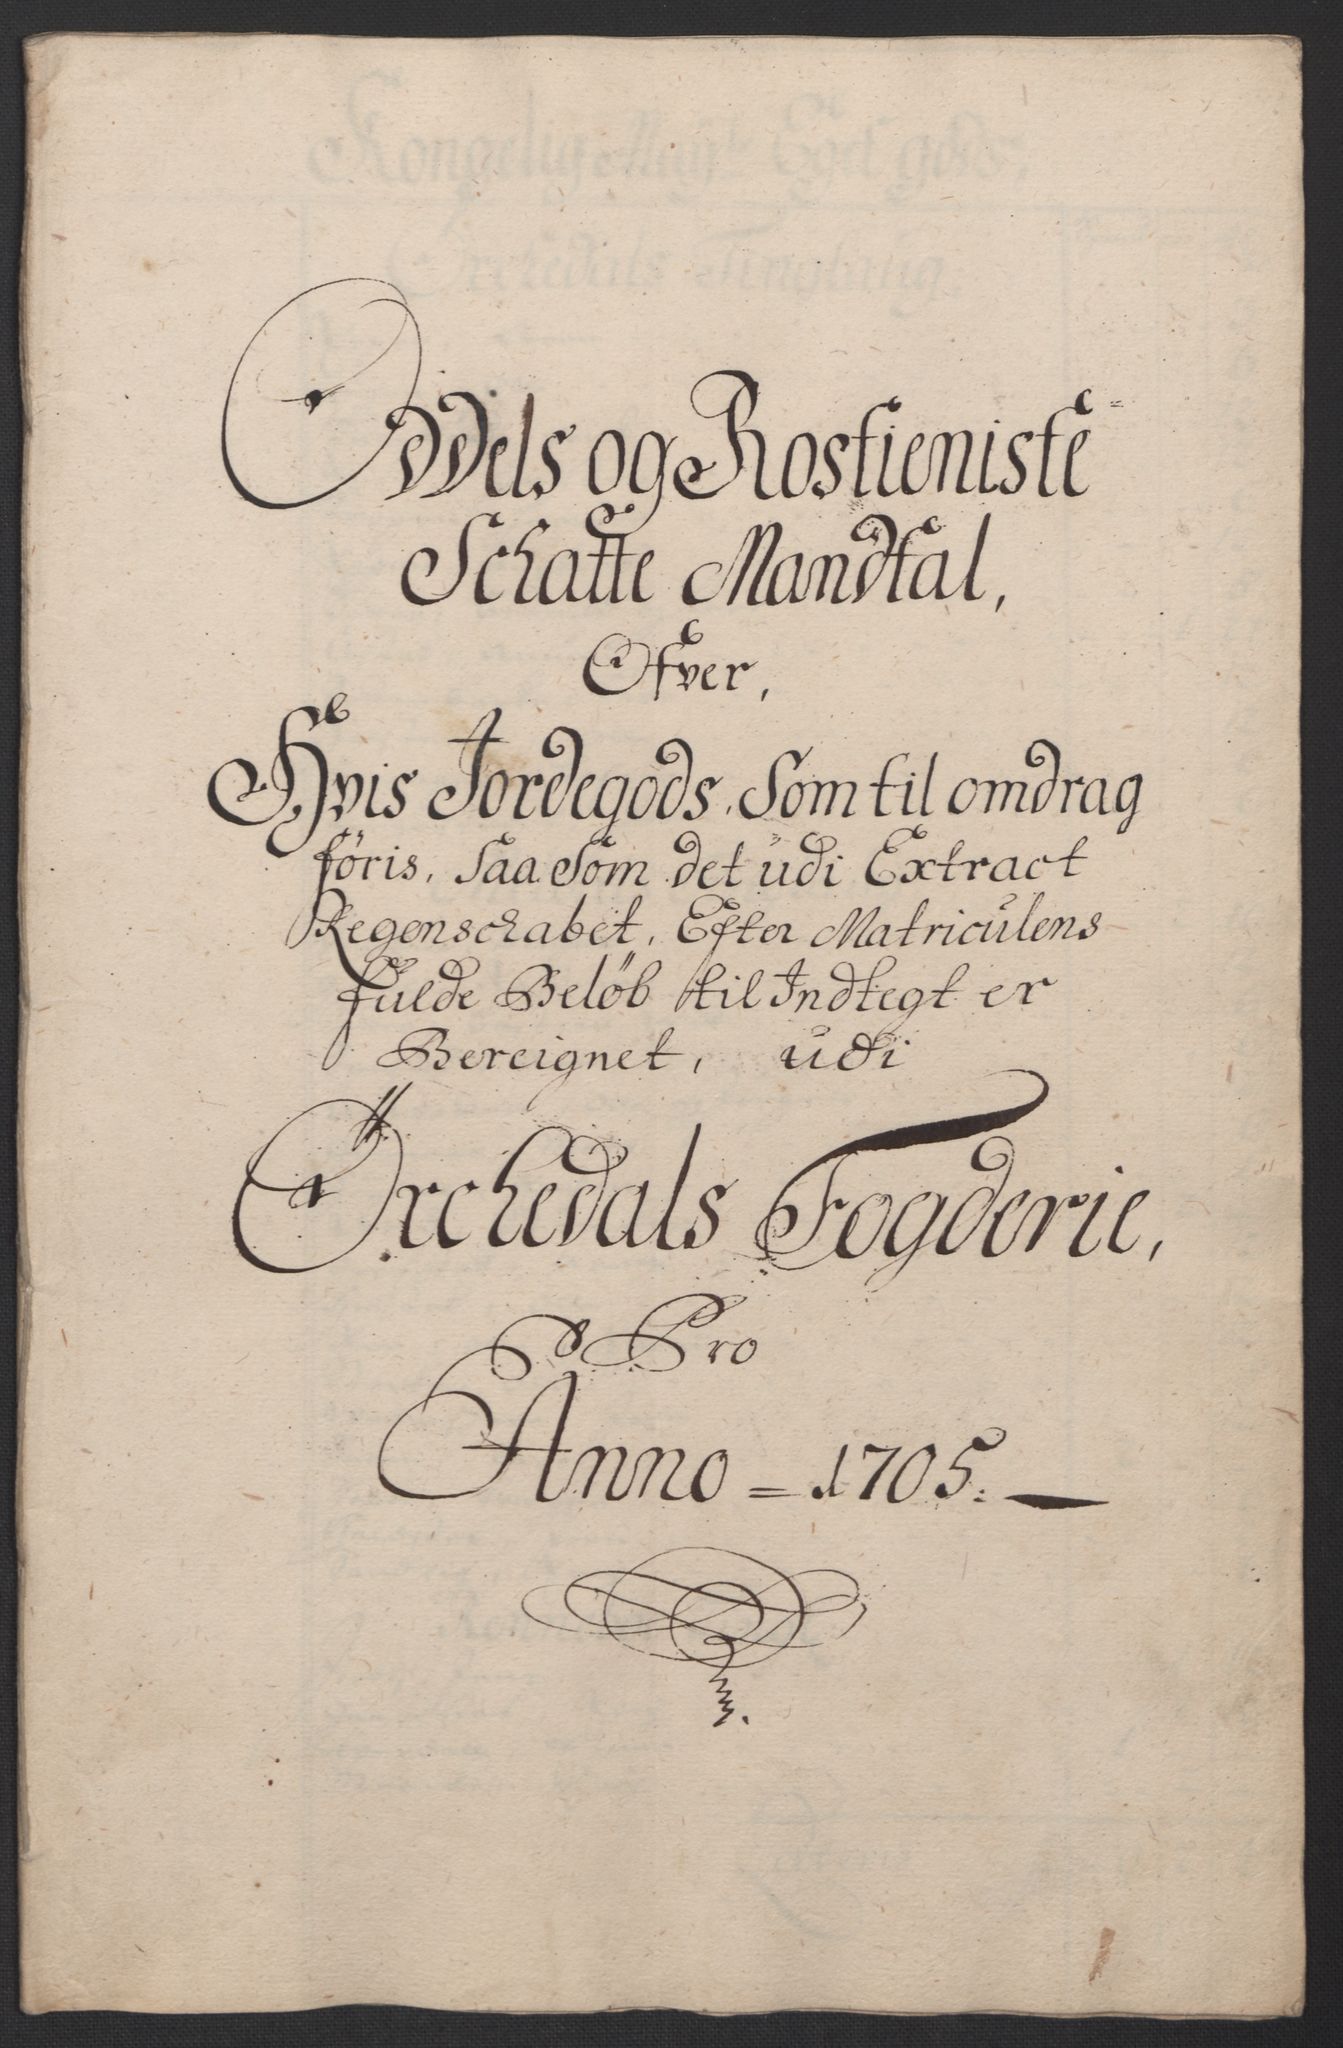 Oddels og Rostieniste
Schatte Mandtal,
Ofver,
Hvis Jordegods, Som til omdrag
föris, Saa Som det udi Extract
Regenschabet, Efter Matriculens
fulde Belöb til Indtegt er
Bereignet, udi
Örchedals Fogderie,
Pro
Anno = 1705.